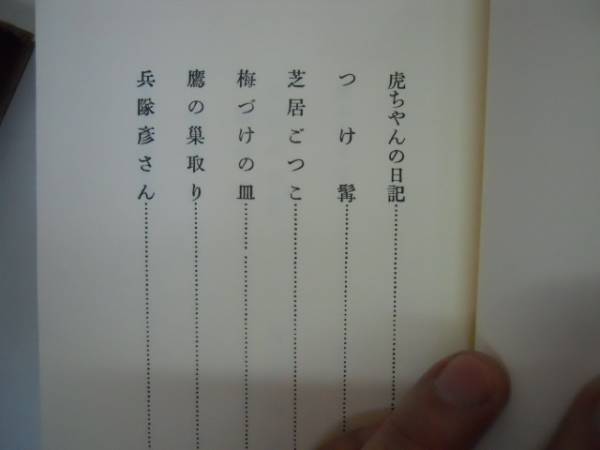 虎ちやんの日記
つけ髯
芝居ごつこ
梅づけの皿
鷹の巣取り
兵隊彦さん